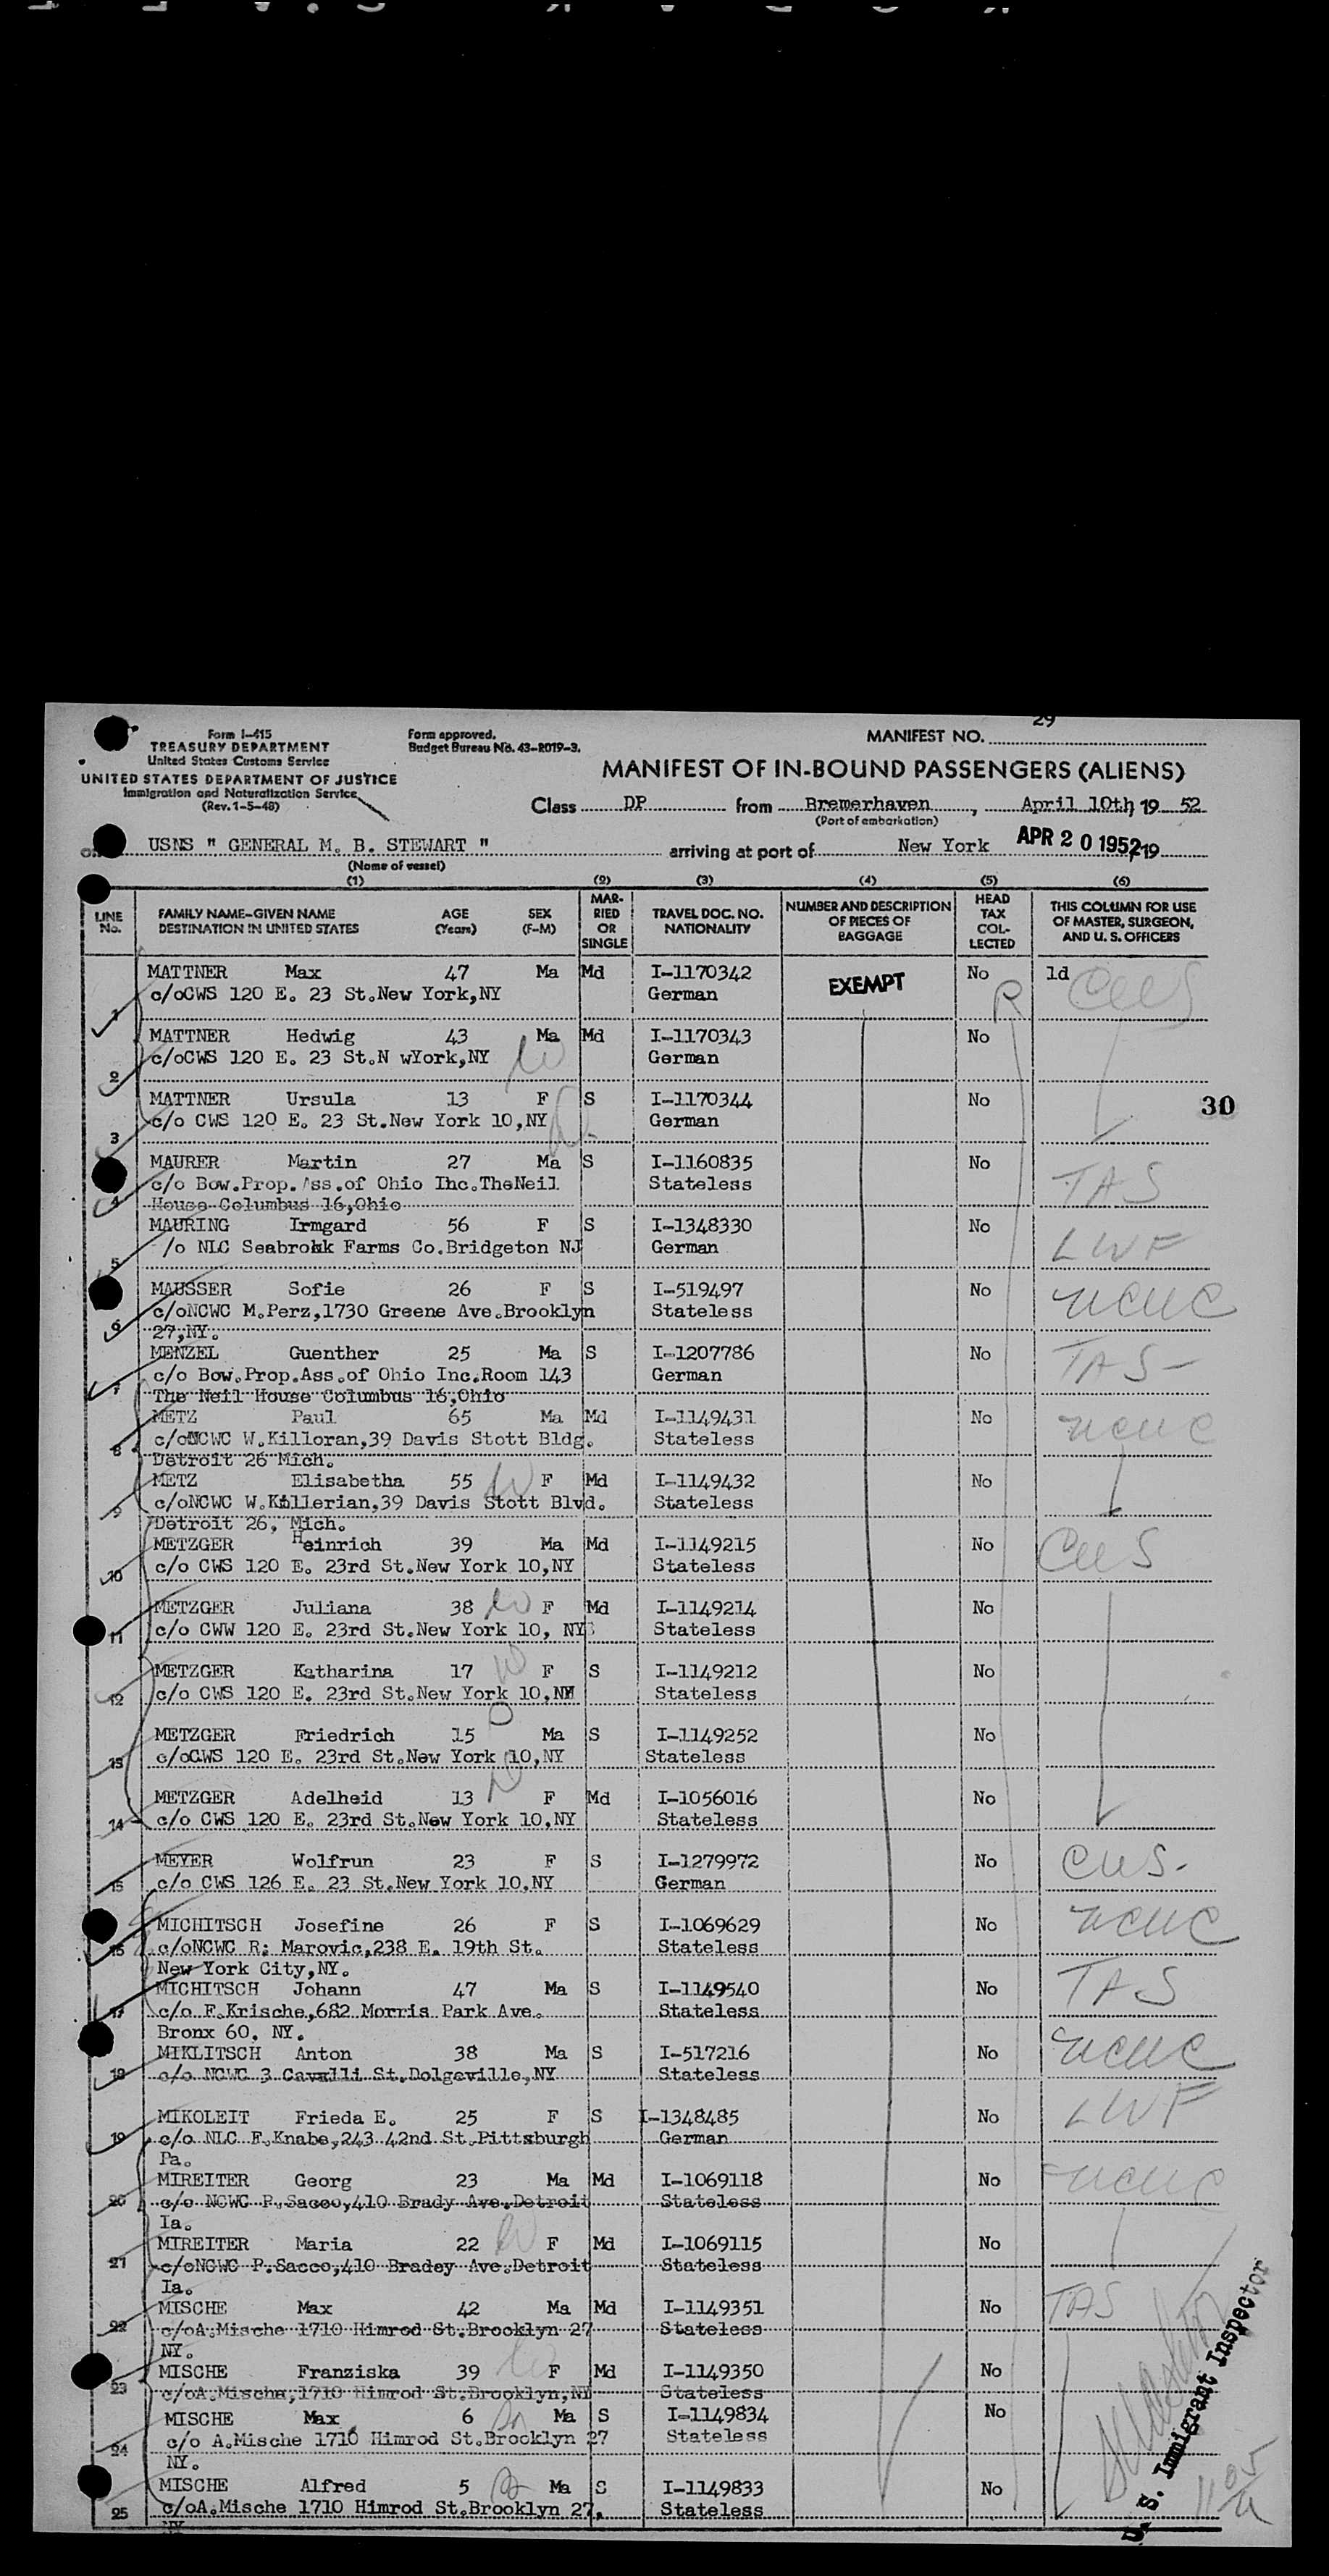 29
Form I-415
TREASURY DEPARTMENT
United States Customs Service
UNITED STATES DEPARTMENT OF JUSTICE
Immigration and Naturalization Service
(Rev. 1-5-48)
Form approved.
Budget Bureau No. 43-R019-3.
MANIFEST NO.
MANIFEST OF IN-BOUND PASSENGERS (ALIENS)
Class DP from Bremerhaven, April 10th, 19 52
(Port of embarkation)
USNS " GENERAL M. B. STEWART " arriving at port of New York APR 20 1952, 19
(Name of vessel)
(1) (2) (3) (4) (5) (6)
LINE No. FAMILY NAME-GIVEN NAME DESTINATION IN UNITED STATES AGE (Years) SEX (F-M) MARRIED OR SINGLE TRAVEL DOC. NO. NATIONALITY NUMBER AND DESCRIPTION OF PIECES OF BAGGAGE HEAD TAX COLLECTED THIS COLUMN FOR USE OF MASTER, SURGEON, AND U. S. OFFICERS
MATTNER Max 47 Ma Md I-1170342 EXEMPT No R 1d CWS
1 c/oCWS 120 E. 23 St.New York,NY German
MATTNER Hedwig 43 Ma Md I-1170343 No
2 c/oCWS 120 E. 23 St.N wYork,NY W German
MATTNER Ursula 13 F S I-1170344 No
30
3 c/o CWS 120 E. 23 St.New York 10,NY German
MAURER Martin 27 Ma S I-1160835 No TAS
4 c/o Bow.Prop.Ass.of Ohio Inc.TheNeil Stateless
House Columbus 16,Ohio
MAURING Irmgard 56 F S I-1348330 No LWF
5 /o NLC Seabrokk Farms Co.Bridgeton NJ German
MAUSSER Sofie 26 F S I-519497 No NCWC
6 c/oNCWC M.Perz,1730 Greene Ave.Brooklyn Stateless
27,NY.
MENZEL Guenther 25 Ma S I-1207786 No TAS-
7 c/o Bow.Prop.Ass.of Ohio Inc.Room 143 German
The Neil House Columbus 16,Ohio
METZ Paul 65 Ma Md I-1149431 No NCWC
8 c/oNCWC W.Killoran,39 Davis Stott Bldg. Stateless
Detroit 26 Mich.
METZ Elisabetha 55 W F Md I-1149432 No
9 c/oNCWC W.Killerian,39 Davis Stott Blvd. Stateless
Detroit 26, Mich.
METZGER Heinrich 39 Ma Md I-1149215 No CWS
10 c/o CWS 120 E. 23rd St.New York 10,NY Stateless
METZGER Juliana 38 W F Md I-1149214 No
11 c/o CWW 120 E. 23rd St.New York 10, NY Stateless
METZGER Katharina 17 F S I-1149212 No
12 c/o CWS 120 E. 23rd St.New York 10,NY Stateless
METZGER Friedrich 15 Ma S I-1149252 No
13 c/oCWS 120 E. 23rd St.New York 10,NY Stateless
METZGER Adelheid 13 F Md I-1056016 No
14 c/o CWS 120 E. 23rd St.New York 10,NY Stateless
MEYER Wolfrun 23 F S I-1279972 No CWS-
15 c/o CWS 126 E. 23 St.New York 10.NY German
MICHITSCH Josefine 26 F S I-1069629 No NCWC
16 c/oNCWC R: Marovic,238 E. 19th St. Stateless
New York City,NY.
MICHITSCH Johann 47 Ma S I-1149540 No TAS
17 c/o F.Krische,682 Morris Park Ave. Stateless
Bronx 60, NY.
MIKLITSCH Anton 38 Ma S I-517216 No NCWC
18 c/o NCWC 3 Cavalli St.Dolgeville,NY Stateless
MIKOLEIT Frieda E. 25 F S I-1348485 No LWF
19 c/o NLC F.Knabe,243 42nd St.Pittsburgh German
Pa.
MIREITER Georg 23 Ma Md I-1069118 No NCWC
20 c/o NCWC P.Sacco,410 Brady Ave.Detroit Stateless
Ia.
MIREITER Maria 22 W F Md I-1069115 No
21 c/oNCWC P.Sacco,410 Bradey Ave.Detroit Stateless
Ia.
MISCHE Max 42 Ma Md I-1149351 No TAS
22 c/oA.Mische 1710 Himrod St.Brooklyn 27 Stateless
NY.
MISCHE Franziska 39 W F Md I-1149350 No
23 c/oA.Mische,1710 Himrod St.Brooklyn,NY Stateless
MISCHE Max 6 Ma S I-1149834 No
24 c/o A.Mische 1710 Himrod St.Brooklyn 27 Stateless
NY.
MISCHE Alfred 5 Ma S I-1149833 No
25 c/oA.Mische 1710 Himrod St.Brooklyn 27, Stateless
NY
U. S. Immigrant Inspector